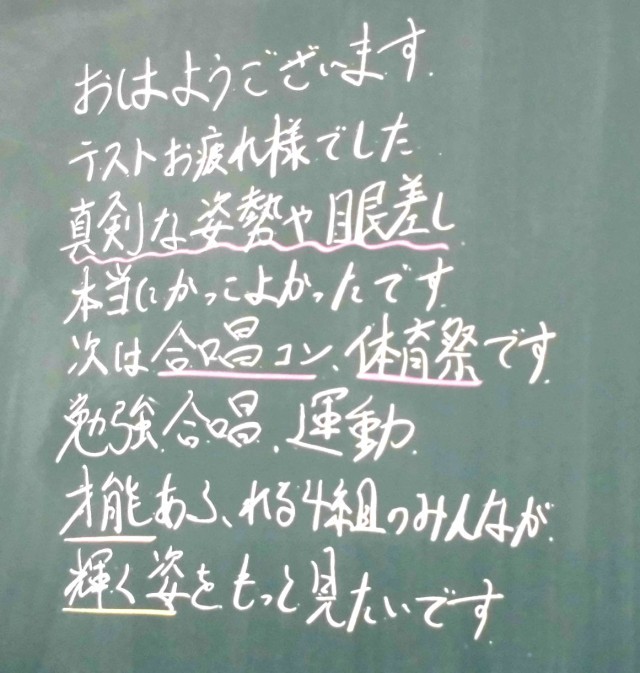 おはようございます.
テストお疲れ様でした
真剣な姿勢や眼差し
本当にかっこよかったです.
次は合唱コン、体育祭です.
勉強.合唱.運動.
才能あふれる4組のみんなが.
輝く姿をもっと見たいです